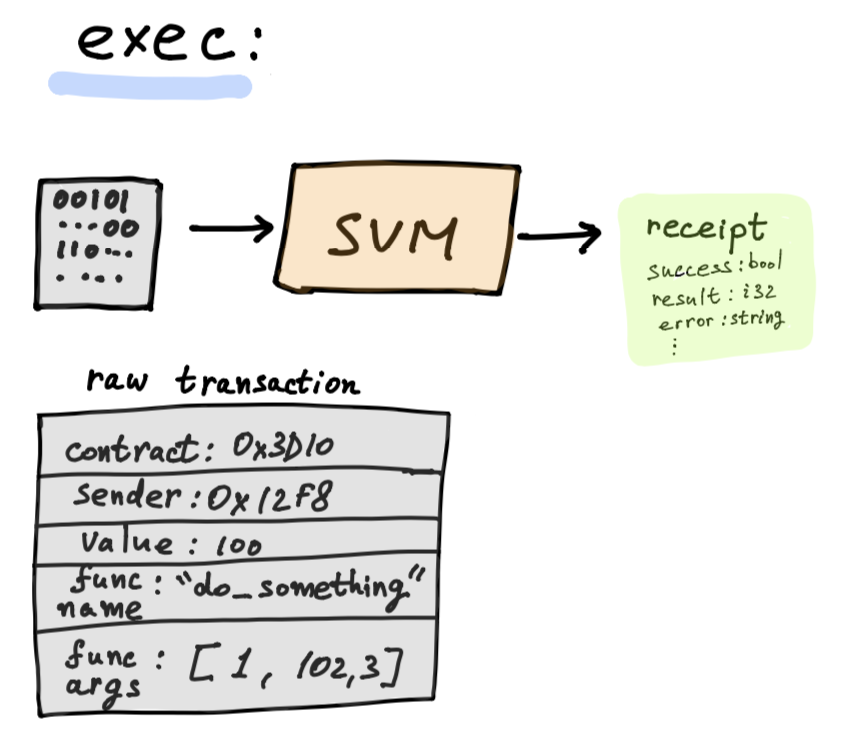 exec:
00101
...00
110...
. ...
SVM
receipt
success: bool
result: i32
error: string
⋮
raw transaction
contract: 0x3D10
sender: 0x12F8
value: 100
func name: "do_something"
func args: [1, 102,3]